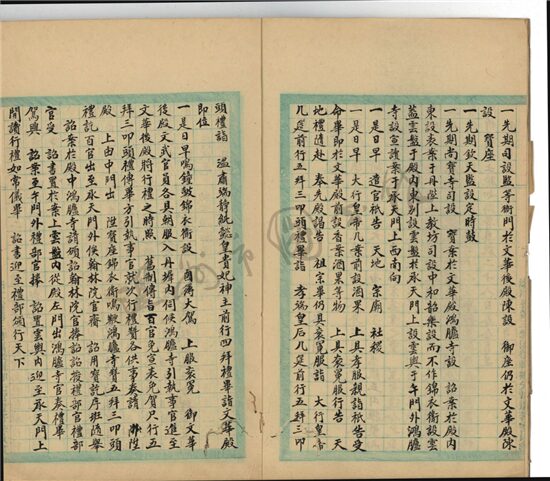 一先期司設監等衙門於文華後殿陳設　御座仍於文華殿陳
設　寶座
一先期欽天監設定時皷
一先期尚寶司設　寶案於文華殿鴻臚寺設　詔案於殿內
東設表案於丹陛上教坊司設中和韶樂設而不作錦衣衛設雲
蓋雲盤于殿內東別設雲盤於承天門上設雲輿于午門外鴻臚
寺設宣讀案于承天門上西南向
一是日早　遣官祗告　天地　宗廟　社稷
一是日早　大行皇帝几案前設酒果　上具孝服親詣祗告受
命畢即于文華殿前設香案酒果等物　上具袞冕服行告　天
地禮隨赴　奉先殿謁告　祖宗畢仍具袞冕服詣　大行皇帝
几筵前行五拜三叩頭禮畢詣　孝端皇后几筵前行五拜三叩
頭禮詣　溫肅端靖純懿皇貴妃神主前行四拜禮畢詣文華殿
即位
一是日早鳴鐘皷錦衣衛設　鹵簿大駕　上服袞冕　御文華
後殿文武官員各具朝服入丹墀內伺候鴻臚寺引執事官進至
文華後殿將行禮之時照　舊例傳旨百官免宣表免賀只行五
拜三叩頭禮傳畢引執事官就次行禮贊各供事奏請　陞
殿　上由中門出　陞寶座錦衣衛鳴鞭鴻臚寺贊五拜三叩頭
禮訖百官出至承天門外候翰林院官齎　詔用寶訖序班隨舉
詔案於殿中鴻臚寺請頒詔翰林院官捧詔授禮部官捧詔
官受　詔書置於案上雲盤內從殿左門出鴻臚寺官奏禮畢
駕興　詔案至午門外禮部官捧　詔置雲輿內迎至承天門上
開讀行禮如常儀畢　詔書迎至禮部頒行天下